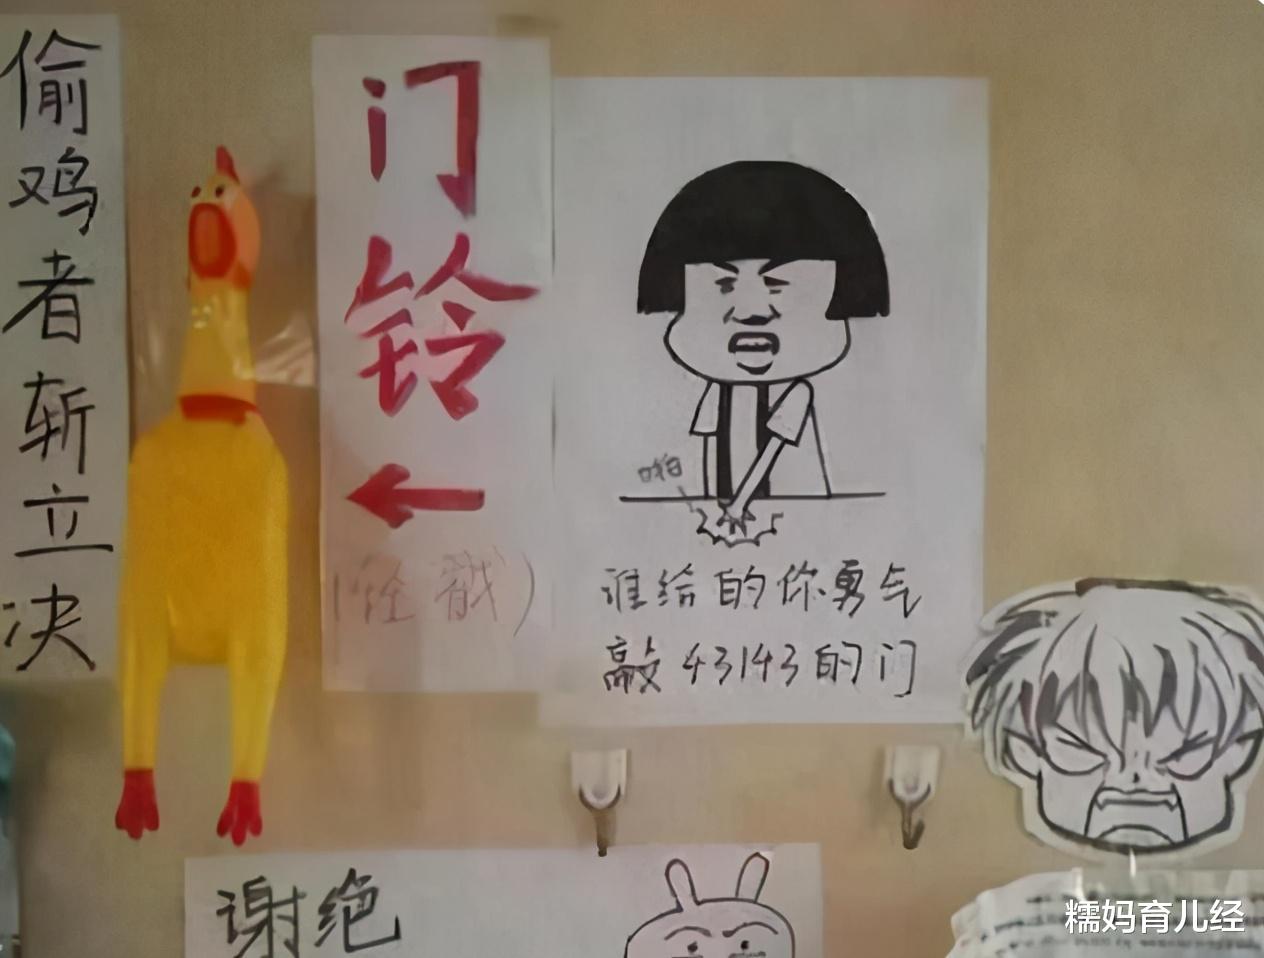 偷鸡者斩立决
门铃
(轻戳)
啪
谁给的你勇气
敲43143的门
谢绝
糯妈育儿经